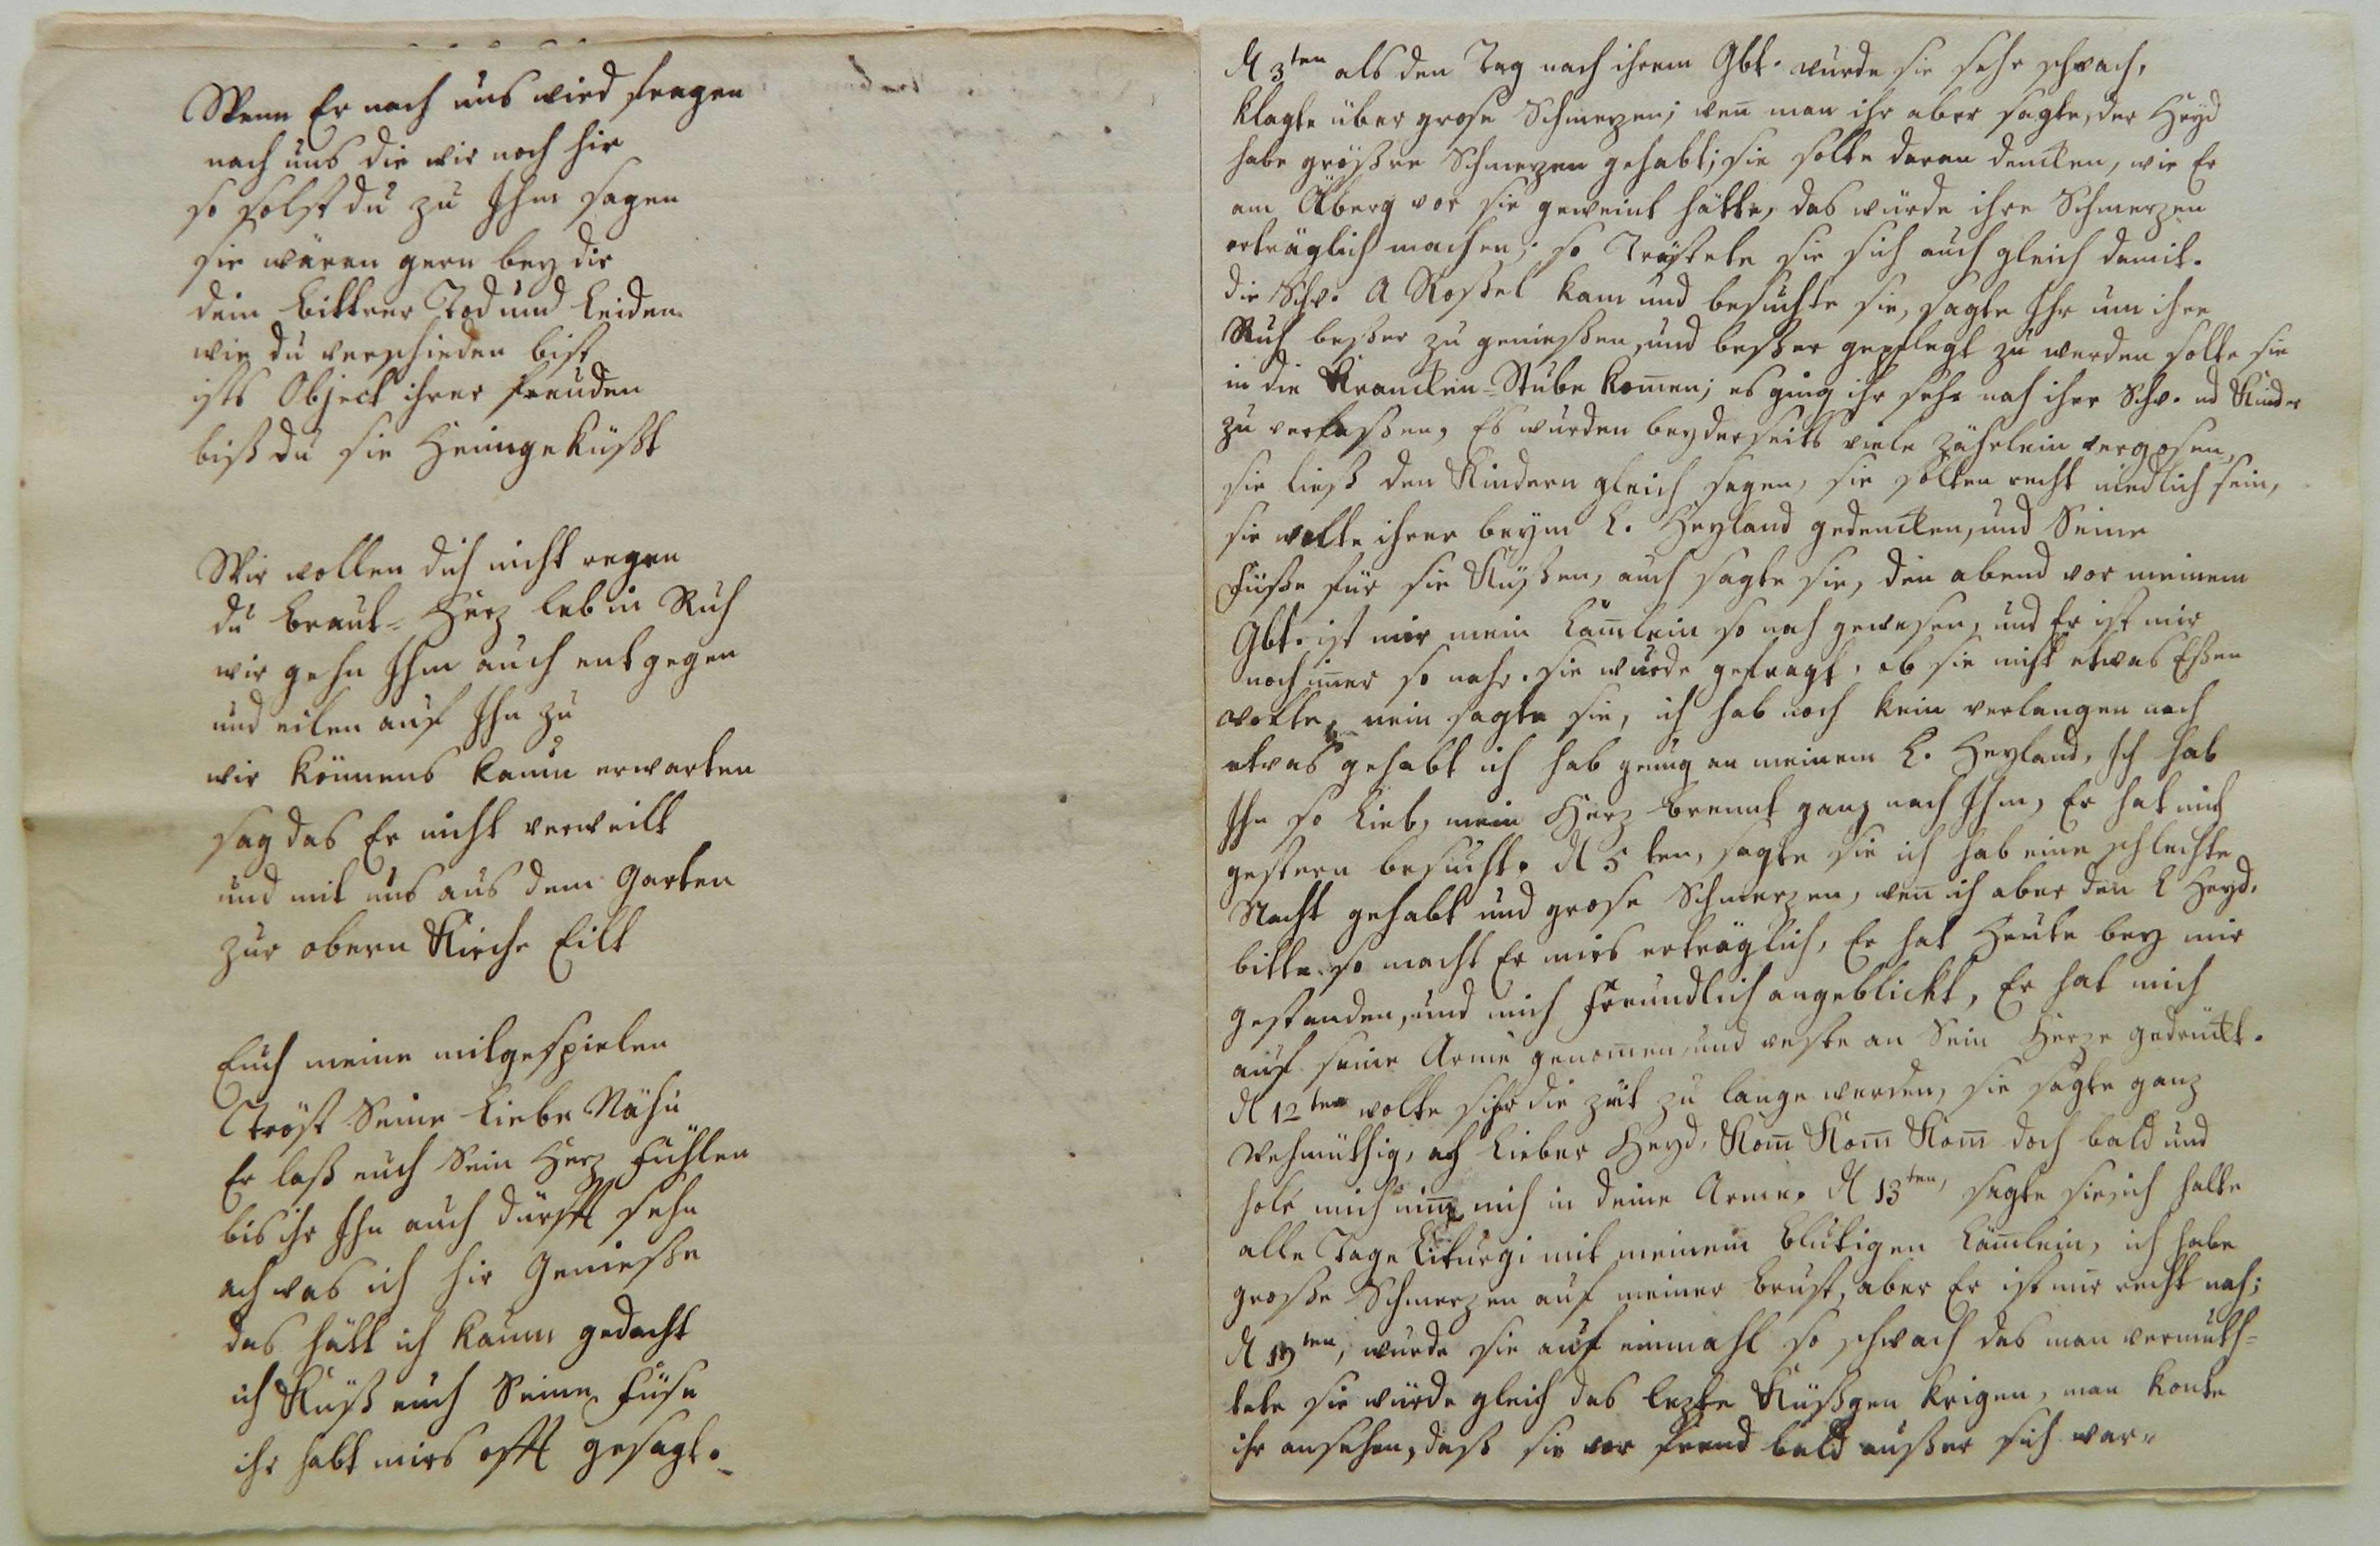 Wenn Er nach uns wird fragen
nach uns die wir noch hir
so solst du zu Ihm sagen
sie wären gern bey dir
dein bittrer Tod und Leiden
wie du verschieden bist
ists Object ihrer freuden
biß du sie Heimgeküßt
Wir wollen dich nicht regen
du braut-Herz leb in Ruh
wir gehn Ihm auch entgegen
und eilen auf Ihn zu
wir könnens kaum erwarten
sag das Er nicht verweilt
und mit uns aus dem Garten
zur obern Kirche Eilt
Euch meine mitgespielen
Tröst Seine Liebe Nähe
Er laß euch Sein Herz fühlen
bis ihr Ihn auch dürfft sehn
ach was ich hir Genieße
das hätt ich kaum gedacht
ich Küß euch Seine Füse
ihr habt mirs offt gesagt.
d 3ten als den Tag nach ihrem Gbt. wurde sie sehr schwach,
klagte über grose Schmerzen; wen̄ man ihr aber sagte, der Heyd
habe größre Schmerzen gehabt; sie solte daran dencken, wie Er
am Ölberg vor sie geweint hätte, das würde ihre Schmerzen
erträglich machen; so Tröstete sie sich auch gleich damit.
die Schw. A Rossel kam und besuchte sie, sagte Ihr um ihre
Ruh beßer zu genießen, und beßer gepflegt zu werden solte sie
in die Krancken-Stube kom̄en; es ging ihr sehr nah ihre Schw. ud Kinder
zu verlaßen, Es wurden beyderseits viele Zährlein vergosen,
sie ließ den Kindern gleich sagen, sie solten recht niedlich sein,
sie wolte ihrer beym L. Heyland gedencken, und Seine
Füße für sie Küßen, auch sagte sie, den abend vor meinem
Gbt. ist mir mein Läm̄lein so nah gewesen, und Er ist mir
noch im̄er so nahe. sie wurde gefragt, ob sie nicht etwas Eßen
wolte, nein sagte sie, ich hab noch kein verlangen nach
etwas gehabt ich hab genug an meinem L. Heyland, Ich hab
Ihn so Lieb, mein Herz brennt ganz nach Ihm, Er hat mich
gestern besucht. d 5 ten, sagte sie ich hab eine schlechte
Nacht gehabt und grose Schmerzen, wen̄ ich aber den L Heyd.
bitte so macht Er mirs erträglich, Er hat Heute bey mir
gestanden, und mich freundlich angeblickt, Er hat mich
auf seine Arme genom̄en, und veste an Sein Herze gedrückt.
d 12ten wolte ihr die zeit zu lange werden, sie sagte ganz
Wehmüthig, ach Lieber Heyd, Kom̄ Kom̄ Kom̄ doch bald und
hole mich nim̄ mich in deine Arme. d 13ten, sagte sie, ich halte
alle Tage Liturgi mit meinem blutigen Läm̄lein, ich habe
große Schmerzen auf meiner brust, aber Er ist mir recht nah;
d 19ten, wurde sie auf einmahl so schwach das man vermuth-
tete sie würde gleich das lezte Küßgen krigen, man konte
ihr ansehen, daß sie vor freud bald außer sich war.